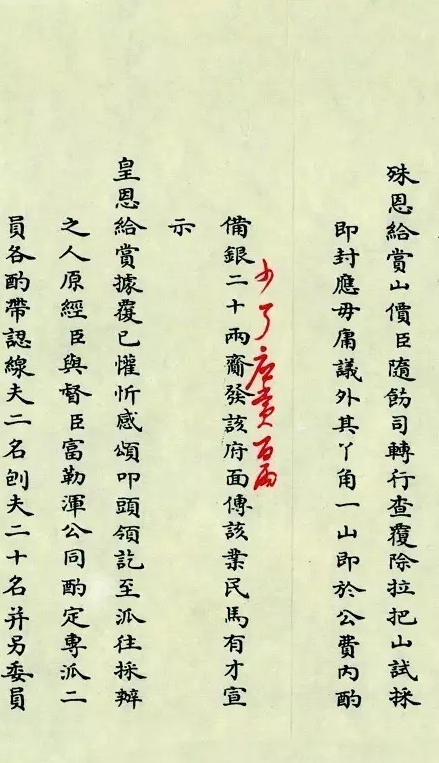 殊恩給賞山價臣隨飭司轉行查覆除拉把山試採
即封應毋庸議外其丫角一山即於公費內酌
少了應賞百兩
備銀二十兩齎發該府面傳該業民馬有才宣
示
皇恩給賞據覆已懽忻感頌叩頭領訖至派往採辦
之人原經臣與督臣富勒渾公同酌定專派二
員各酌帶認線夫二名刨夫二十名并另委員